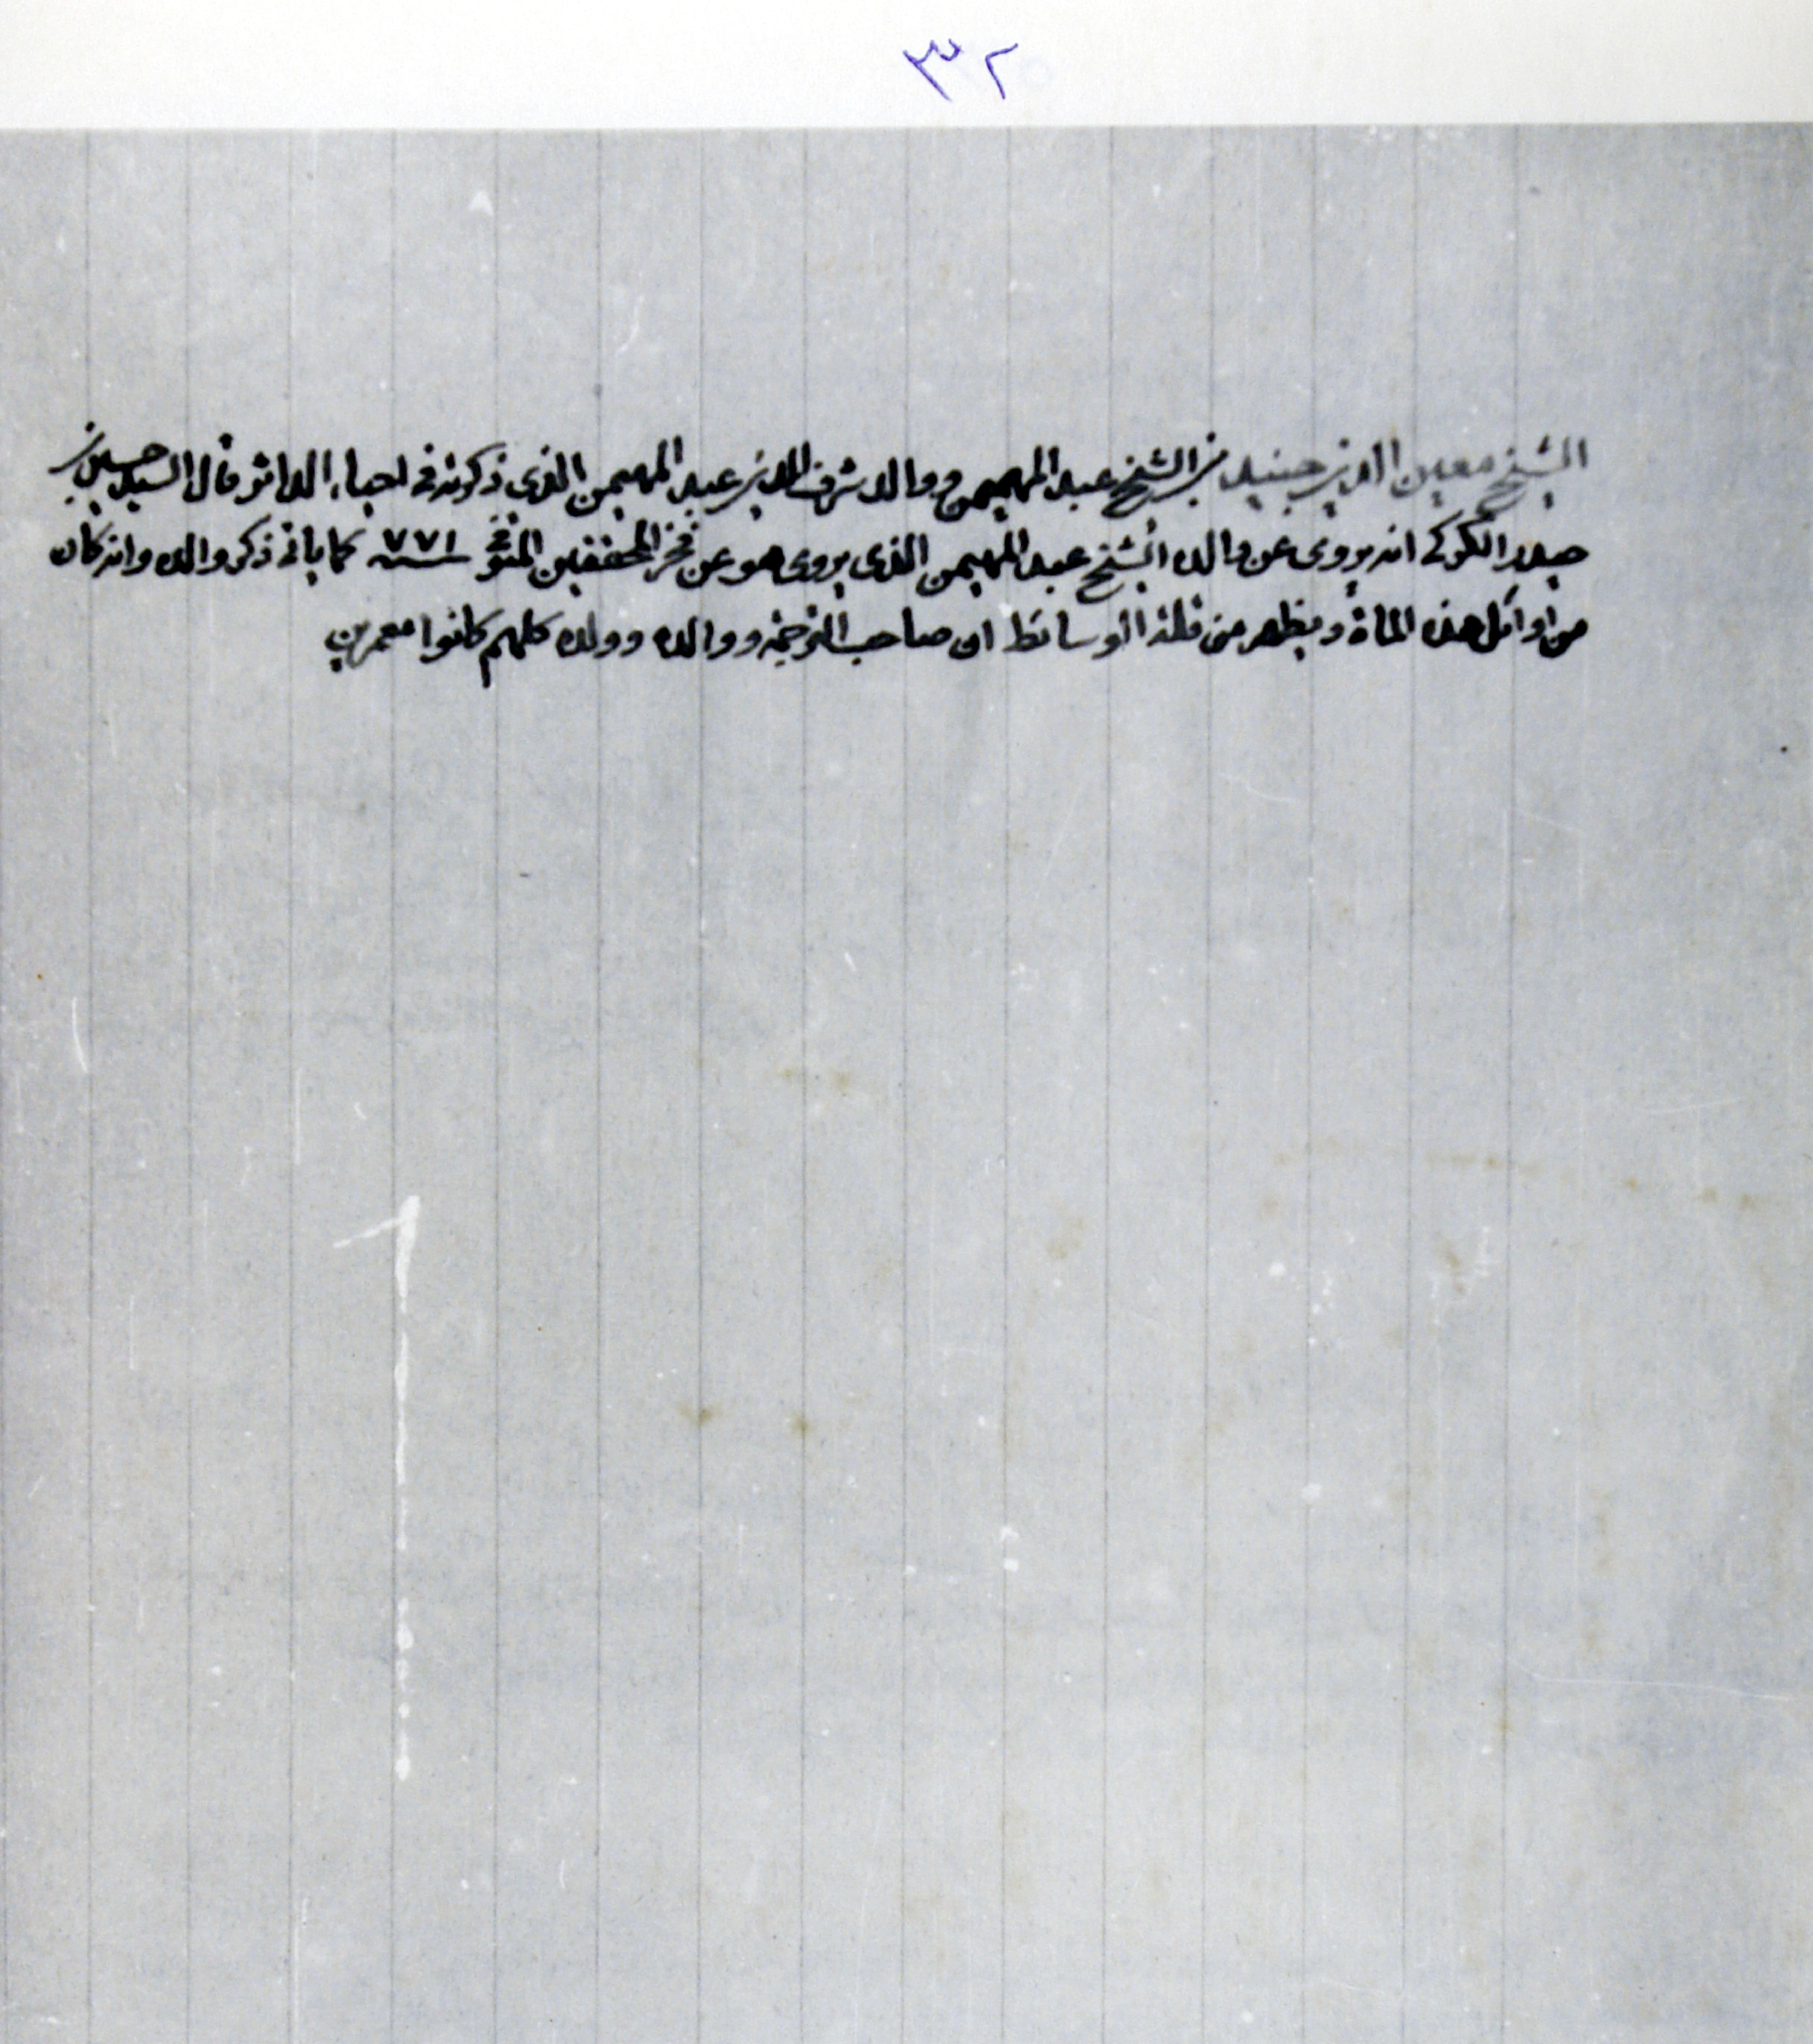 ٣٢
الشيخ معين الدين جنيد بن الشيخ عبد المهيمن ووالد شرف الدين عبد المهيمن الذي ذكرته في احياء الداثر قال السيد حسين بن
حيدر الكركي انه يروى عن والده الشيخ عبد المهيمن الذى يروى هو عن فخر المحققين المتوفى سنة ٧٧١ كما ياتى ذكر والده وانه كان
من اوائل هذه المأة ويظهر من قلة الوسائط ان صاحب الترجمة ووالده وولده كلهم كانوا معمرين